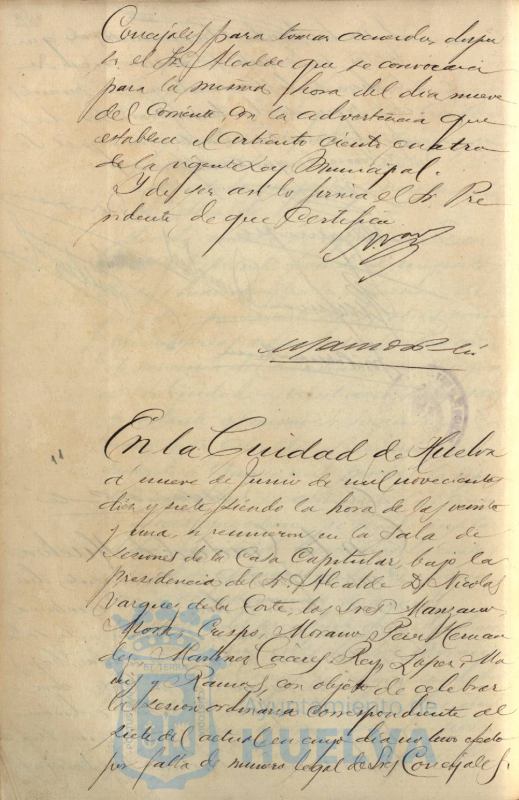 Concejales para tomar acuerdo, dispu
so el Sr. Alcalde que se convocara
para la misma hora del dia nueve
del corriente, con la advertencia que
establece el artículo ciento cuatro
de la vigente Ley Municipal.
Y de ser así lo firma el Sr. Pre
sidente de que certifico.
En la Ciudad de Huelva
á nueve de Junio de mil novecientos
diez y siete, siendo la hora de las veinte
y una, se reunieron en la Sala de
Sesiones de la Casa Capitular, bajo la
presidencia del Sr. Alcalde D. Nicolas
Vazquez de la Corte, los Sres. Manzano,
Crespo, Morano, Perez Hernan
dez, Martinez Cáceres, Rey, Lopez
y Ramos, con objeto de celebrar
la sesion ordinaria correspondiente al
siete del actual en cuyo dia no tuvo efecto
por falta de número legal de Sres. Concejales.
Ayuntamiento de
HUELVA